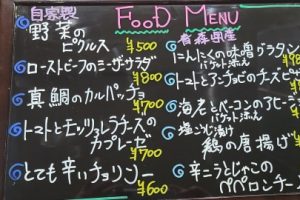 FOOD MENU
自家製
野菜の
ピクルス
¥500
ローストビーフのシーザーサラダ
¥800
真鯛のカルパッチョ
¥700
トマトとモッツァレラチーズの
カプレーゼ
¥700
とても辛いチョリソー
¥600
青森県産
にんにくの味噌グラタン
バケット添え
トマトとアンチョビのチーズピ
海老とベーコンのアヒージ
バケット添え
塩こうじ漬け
鶏の唐揚げ
辛ニラとじゃこの
ペペロンチー